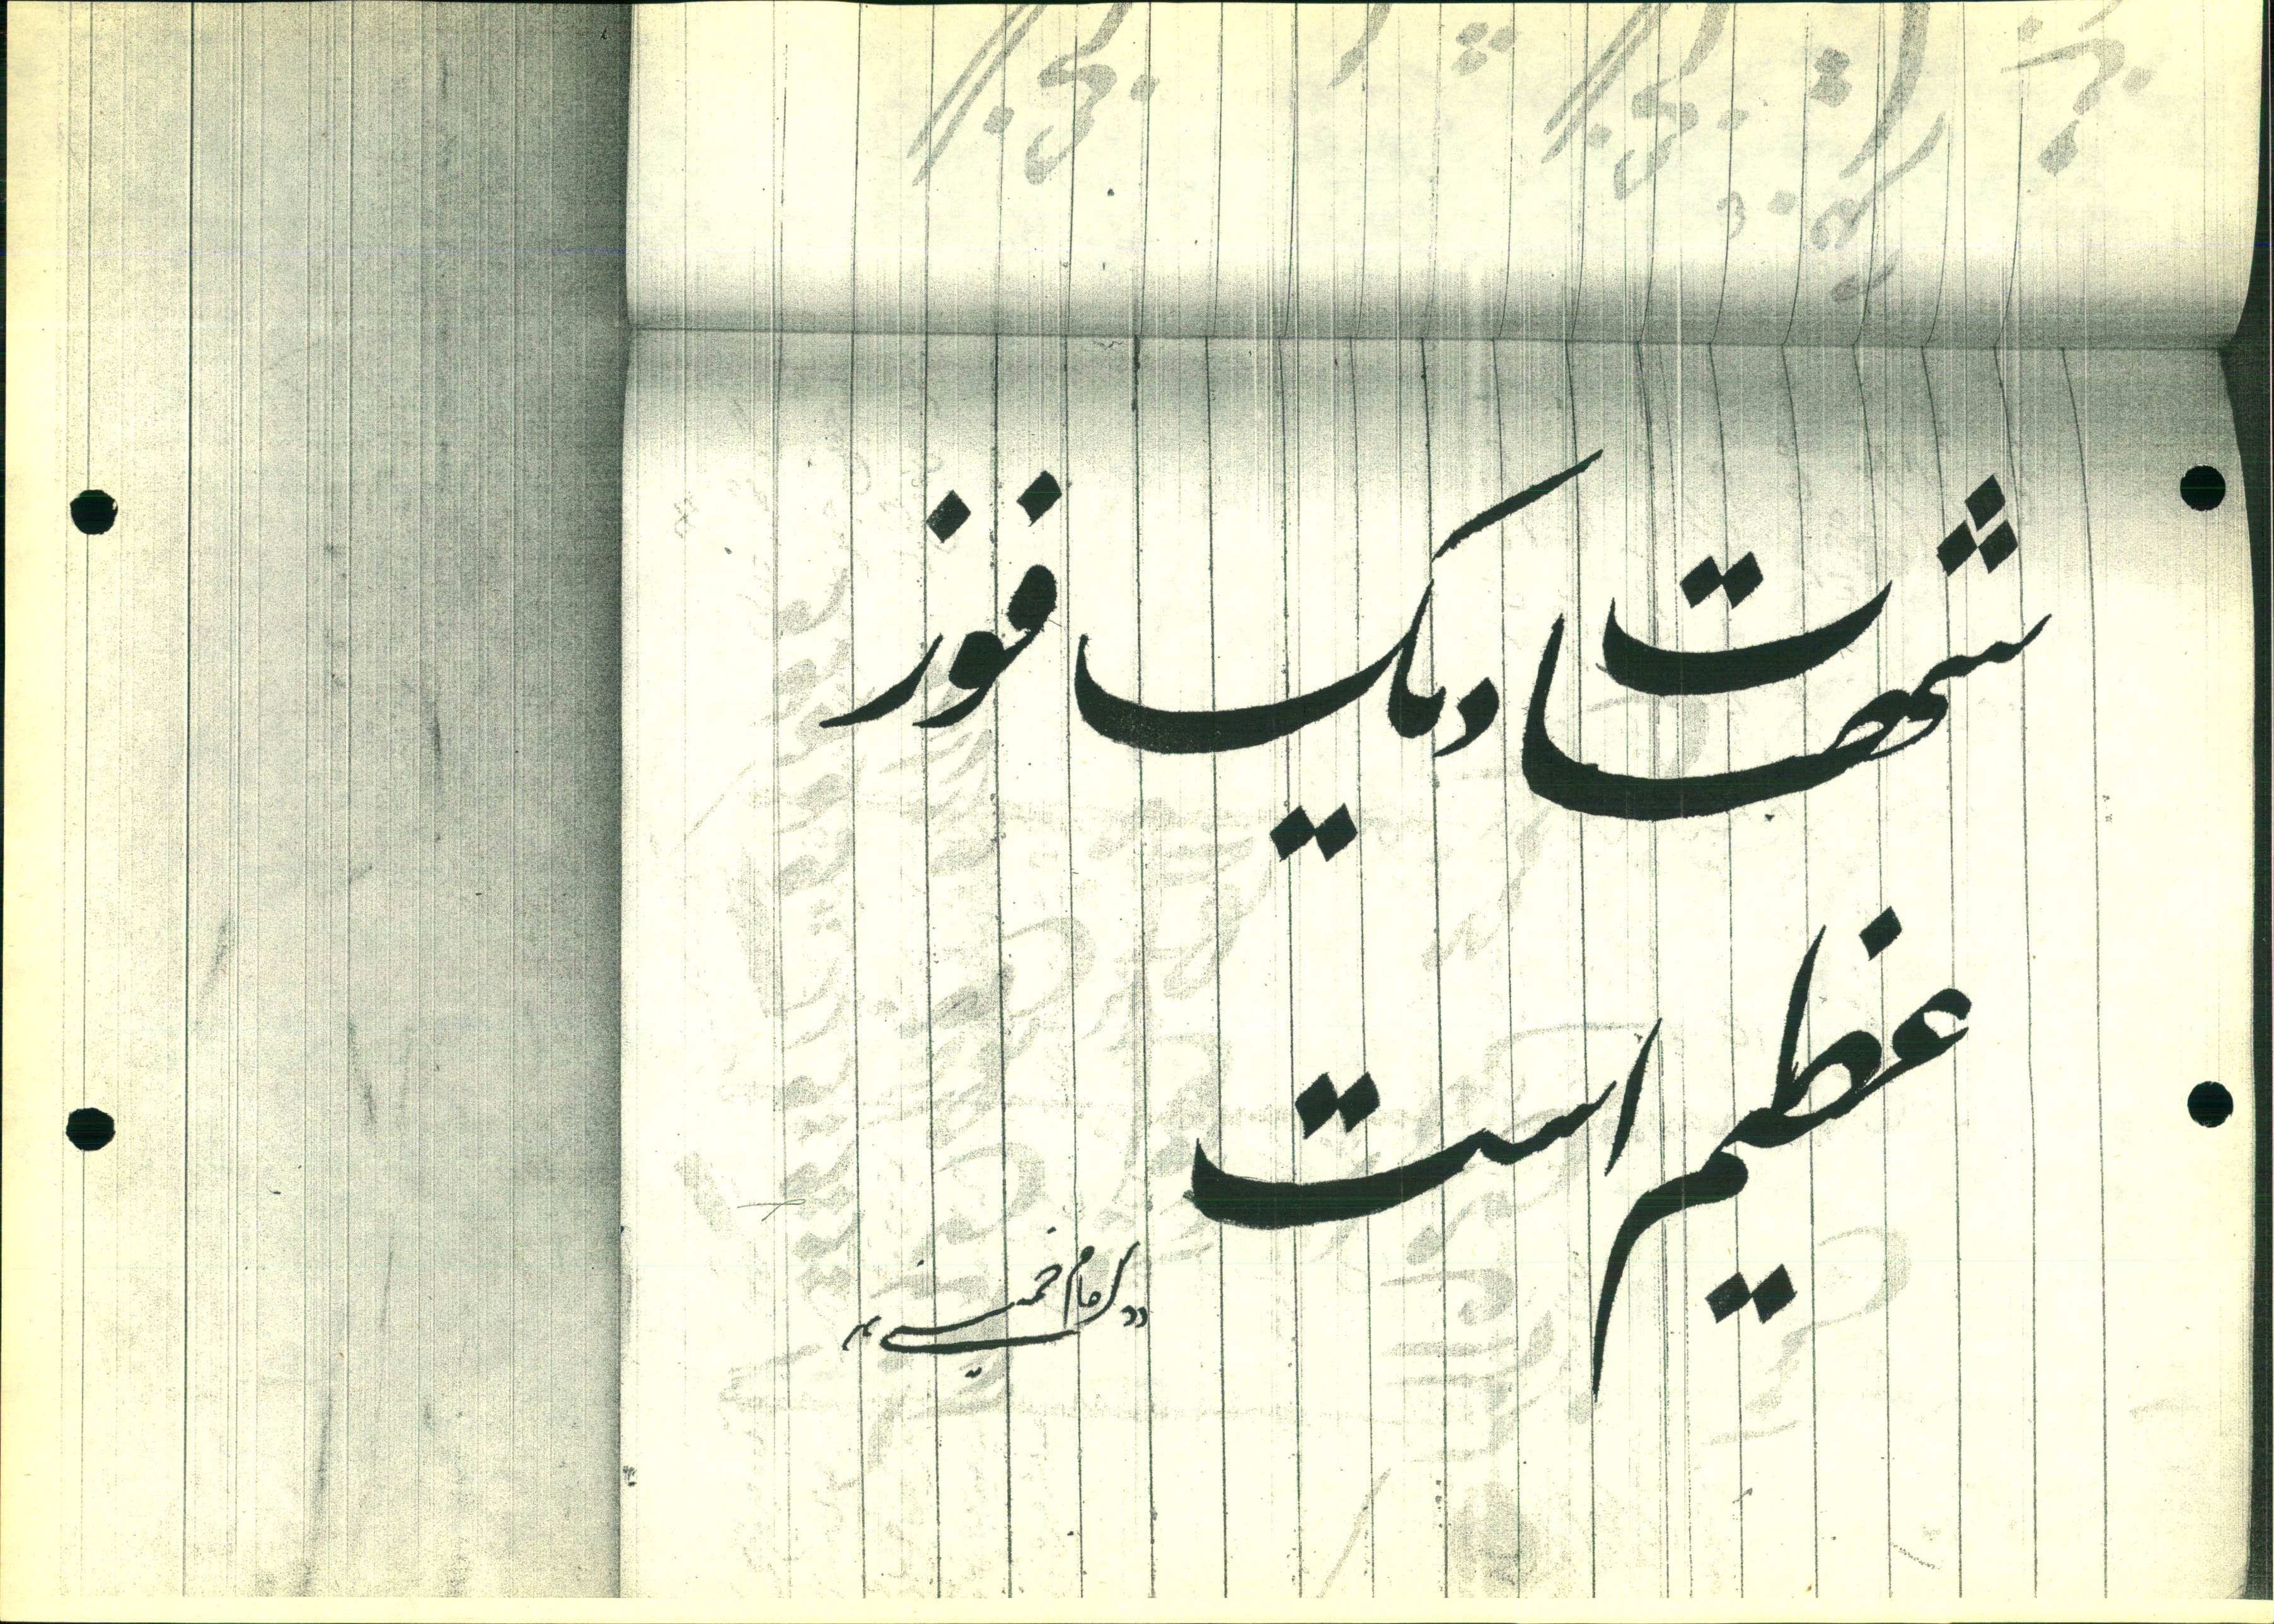 شهادت یک فوز
عظیم است
"امام خمینی"